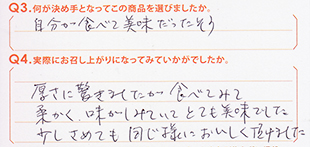 Q3.何が決め手となってこの商品を選びましたか。
自分が食べて美味だったそう
Q4.実際にお召し上がりになってみていかがでしたか。
厚さに驚きましたが食べてみて
柔かく、味がしみていてとても美味でした
少しさめても同じ様においしく頂けました